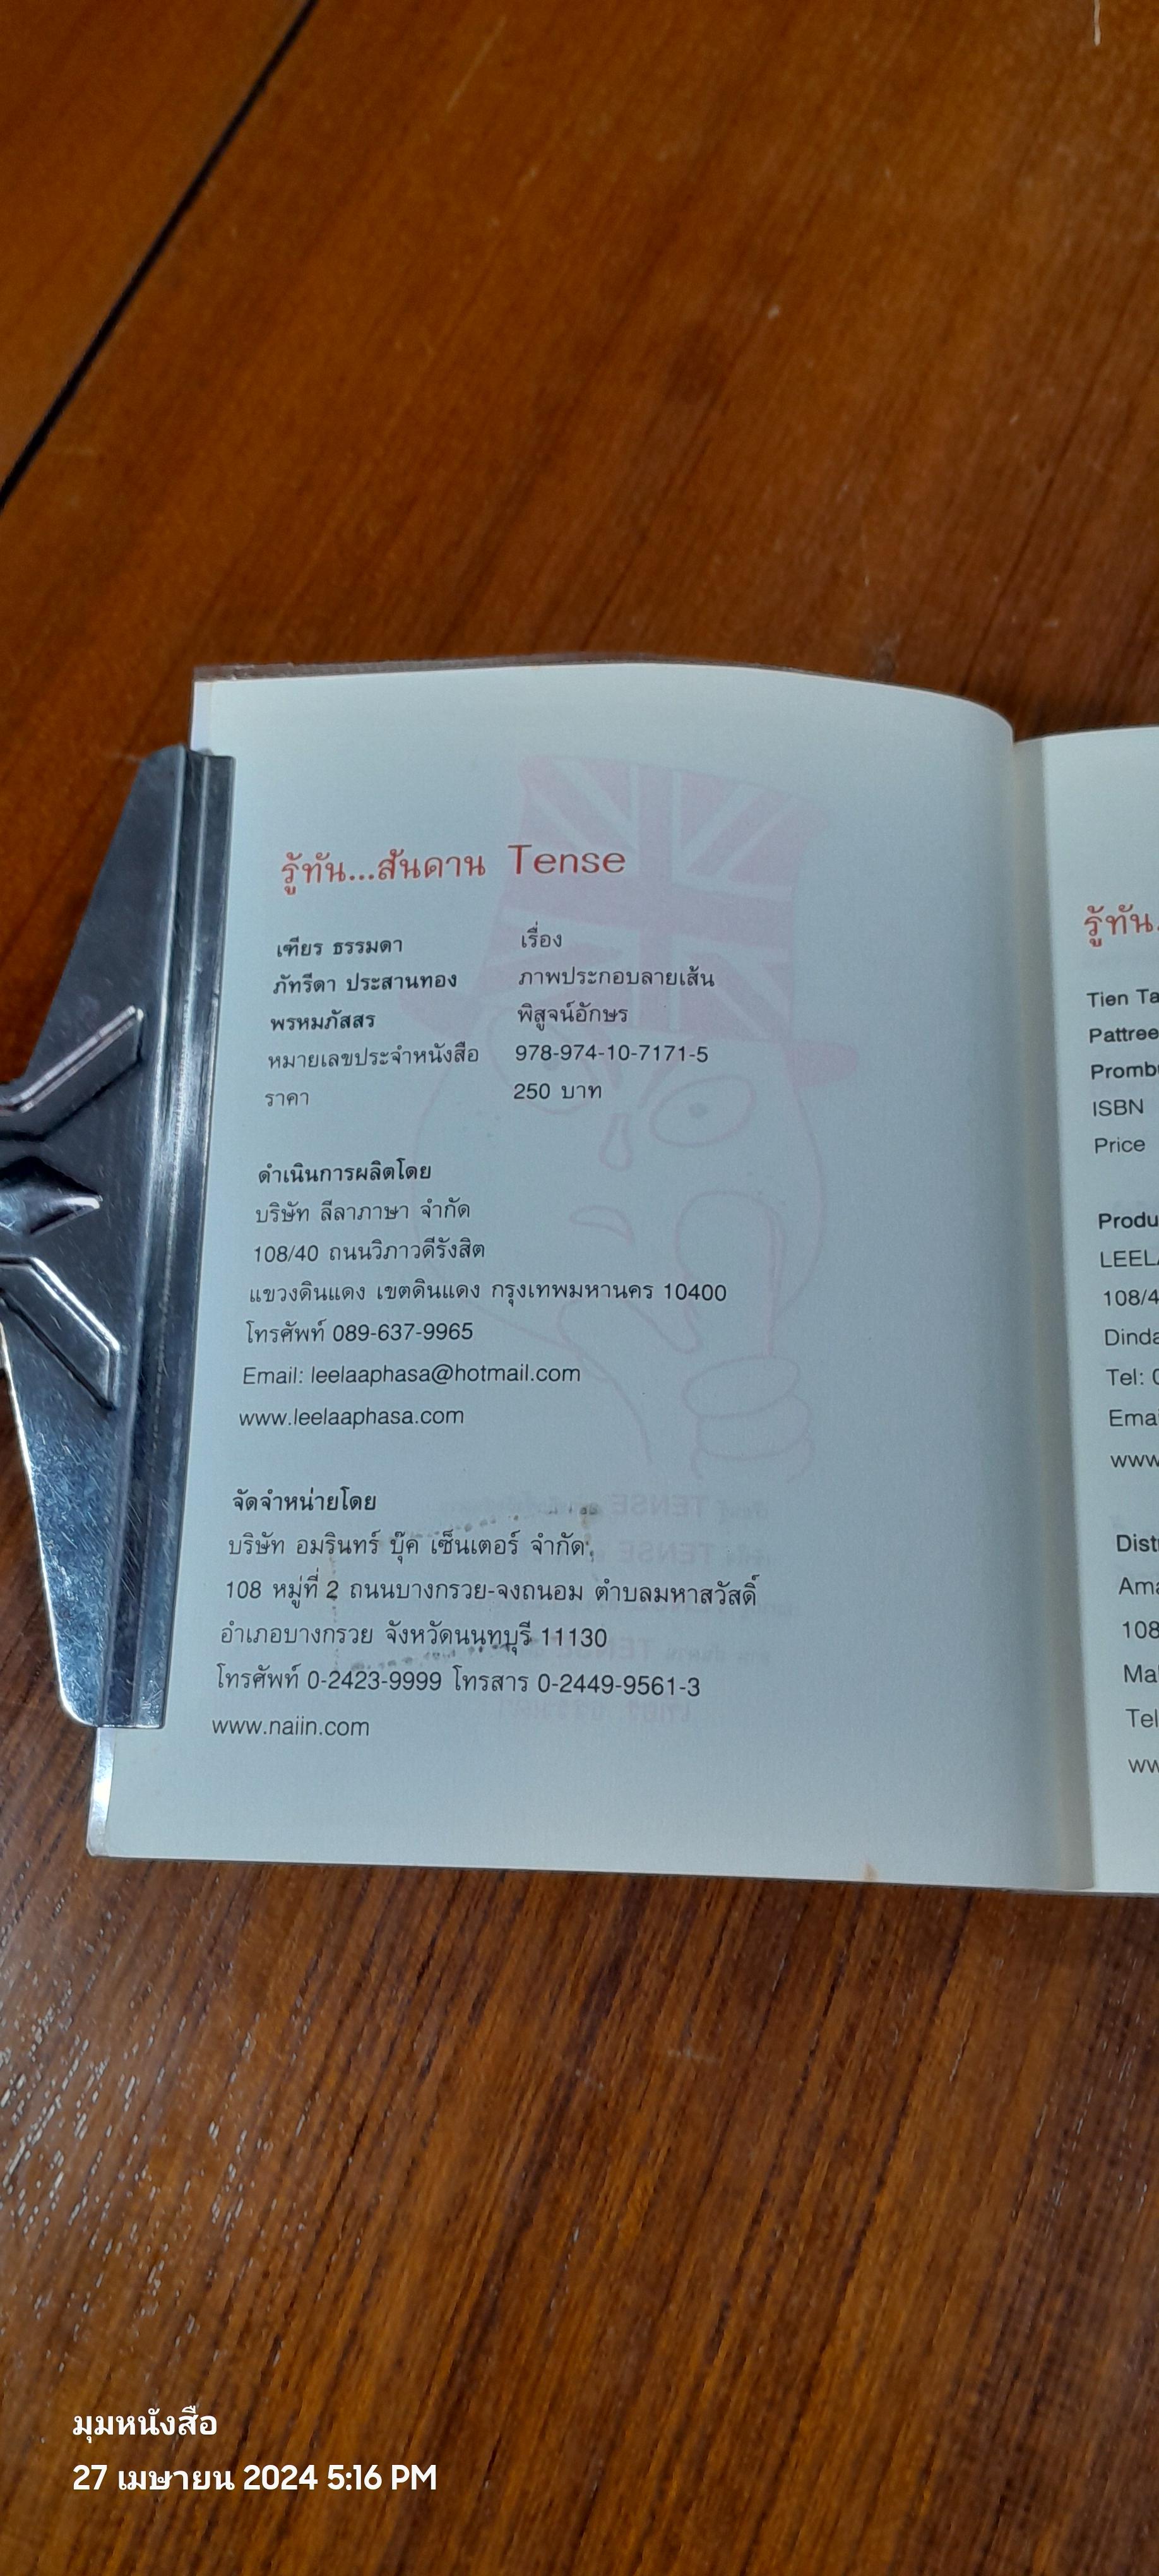 รู้ทัน...สันดาน Tense
เฑียร ธรรมดา เรื่อง
ภัทรีดา ประสานทอง ภาพประกอบลายเส้น
พรหมภัสสร พิสูจน์อักษร
หมายเลขประจำหนังสือ 978-974-10-7171-5
ราคา 250 บาท
ดำเนินการผลิตโดย
บริษัท ลีลาภาษา จำกัด
108/40 ถนนวิภาวดีรังสิต
แขวงดินแดง เขตดินแดง กรุงเทพมหานคร 10400
โทรศัพท์ 089-637-9965
Email: leelaaphasa@hotmail.com
www.leelaaphasa.com
จัดจำหน่ายโดย
บริษัท อมรินทร์ บุ๊ค เซ็นเตอร์ จำกัด
108 หมู่ที่ 2 ถนนบางกรวย-จงถนอม ตำบลมหาสวัสดิ์
อำเภอบางกรวย จังหวัดนนทบุรี 11130
โทรศัพท์ 0-2423-9999 โทรสาร 0-2449-9561-3
www.naiin.com
รู้ทัน
Tien Ta
Pattree
Promb
ISBN
Price
Produ
LEEL
108/4
Dinda
Tel: 0
Emai
www
Dist
Ama
108
Ma
Tel
ww
มุมหนังสือ
27 เมษายน 2024 5:16 PM